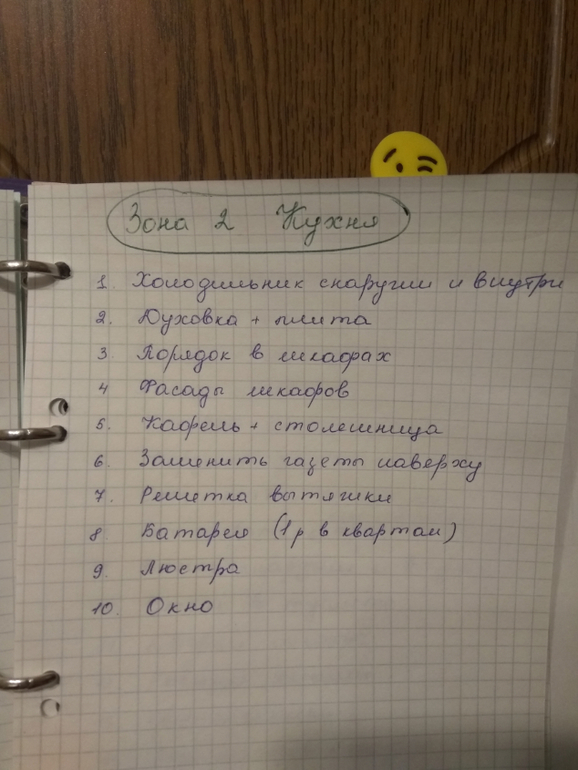 Зона 2 Кухня
1. Холодильник снаружи и внутри
2. Духовка + плита
3. Порядок в шкафах
4 Фасады шкафов
5. Кафель + столешница
6. Заменить газеты наверху
7. Решетка вытяжки
8. Батарея (1 р в квартал)
9. Люстра
10. Окно